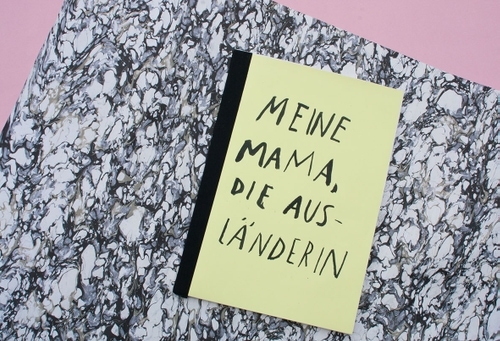 MEINE
MAMA,
DIE AUS-
LÄNDERIN